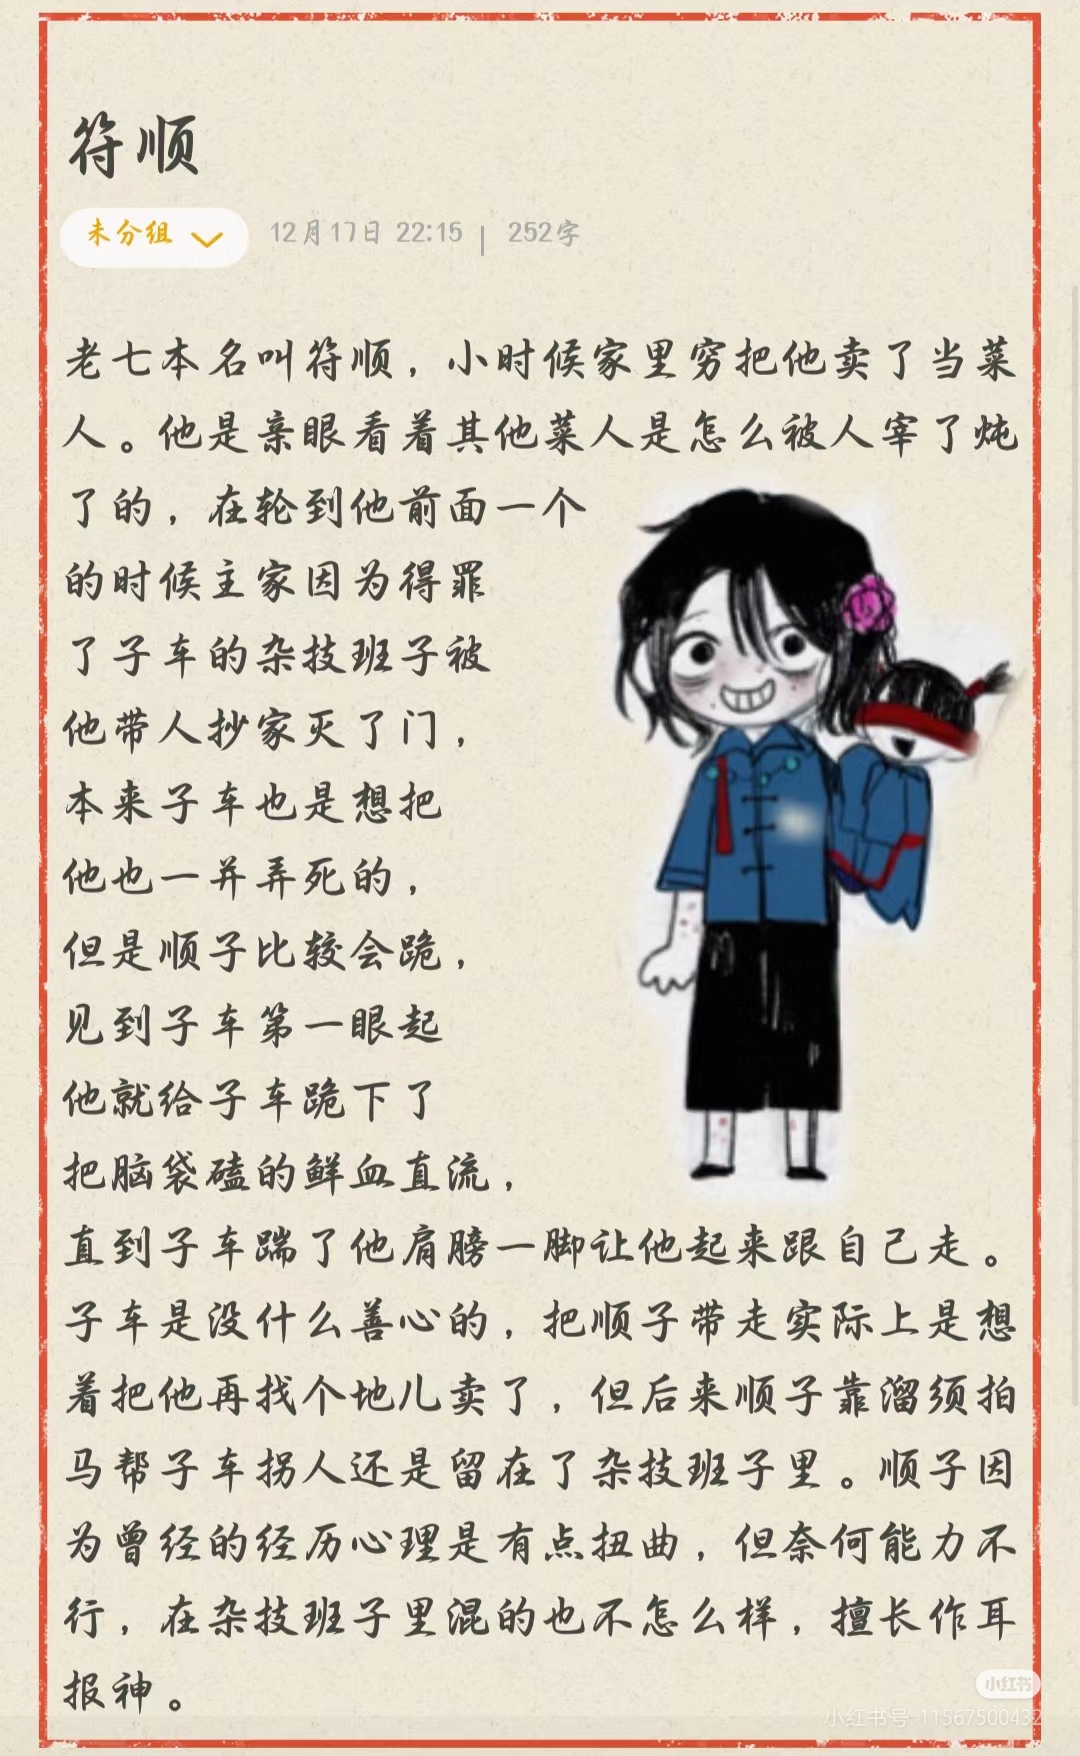 符顺
未分组
12月17日 22:15 | 252字
老七本名叫符顺，小时候家里穷把他卖了当菜
人。他是亲眼看着其他菜人是怎么被人宰了炖
了的，在轮到他前面一个
的时候主家因为得罪
了子车的杂技班子被
他带人抄家灭了门，
本来子车也是想把
他也一并弄死的，
但是顺子比较会跪，
见到子车第一眼起
他就给子车跪下了
把脑袋磕的鲜血直流，
直到子车踹了他肩膀一脚让他起来跟自己走。
子车是没什么善心的，把顺子带走实际上是想
着把他再找个地儿卖了，但后来顺子靠溜须拍
马帮子车拐人还是留在了杂技班子里。顺子因
为曾经的经历心理是有点扭曲，但奈何能力不
行，在杂技班子里混的也不怎么样，擅长作耳
报神。
小红书
小红书号 11567500432